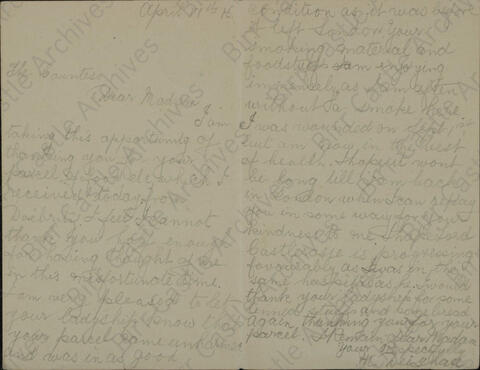 April 11th 15
The Countess
Dear Madam
I am
taking this opportunity of
thanking you for your
parcel which I
received today from
I feel I cannot
thank you enough
for having thought of me
in this misfortunate time.
I am very pleased to let
your ladyship know that
your parcel came
and was in as good
condition as it was before
it left London Your
smoking material and
foodstuffs I am enjoying
immensely as I am often
without a smoke here
I was wounded on Sept
but am now in the best
of health. I hope it wont
be long till I am back
in London when I can repay
you in some way for your
kindness to me I hope Lord
Castlerosse is progressing
favourably as I was in the
same hospital as he. I would
thank your ladyship for some
tinned stuffs and some bread
again thanking you for your
parcel. I Remain Dear Madam
Yours Respectfully
Birr Castle Archives